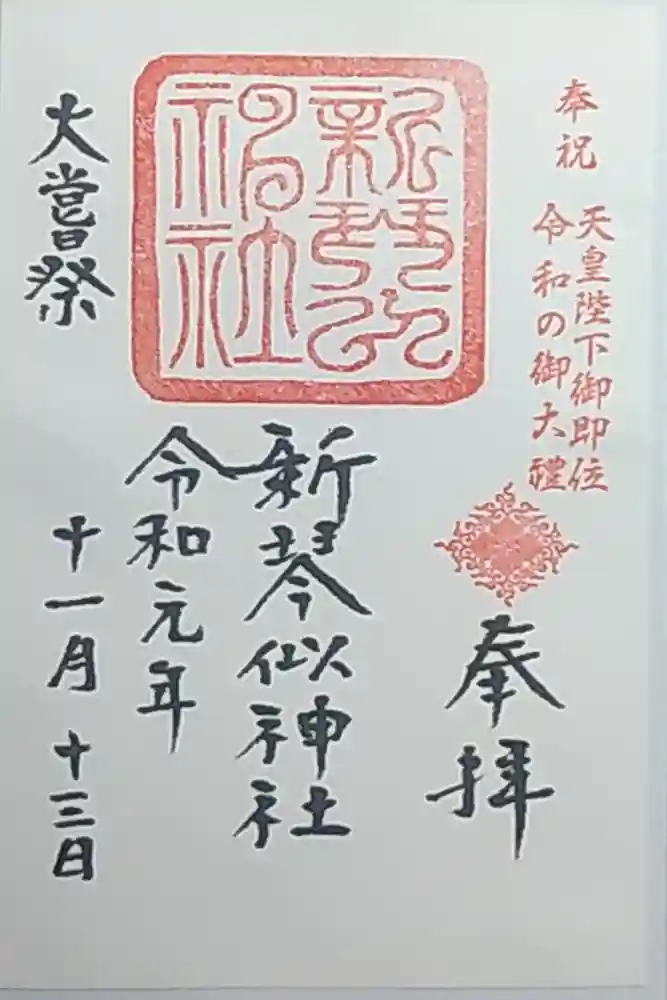 奉祝
天皇陛下御即位
令和の御大禮
奉拝
新琴似神社
令和元年
十一月十三日
大嘗祭